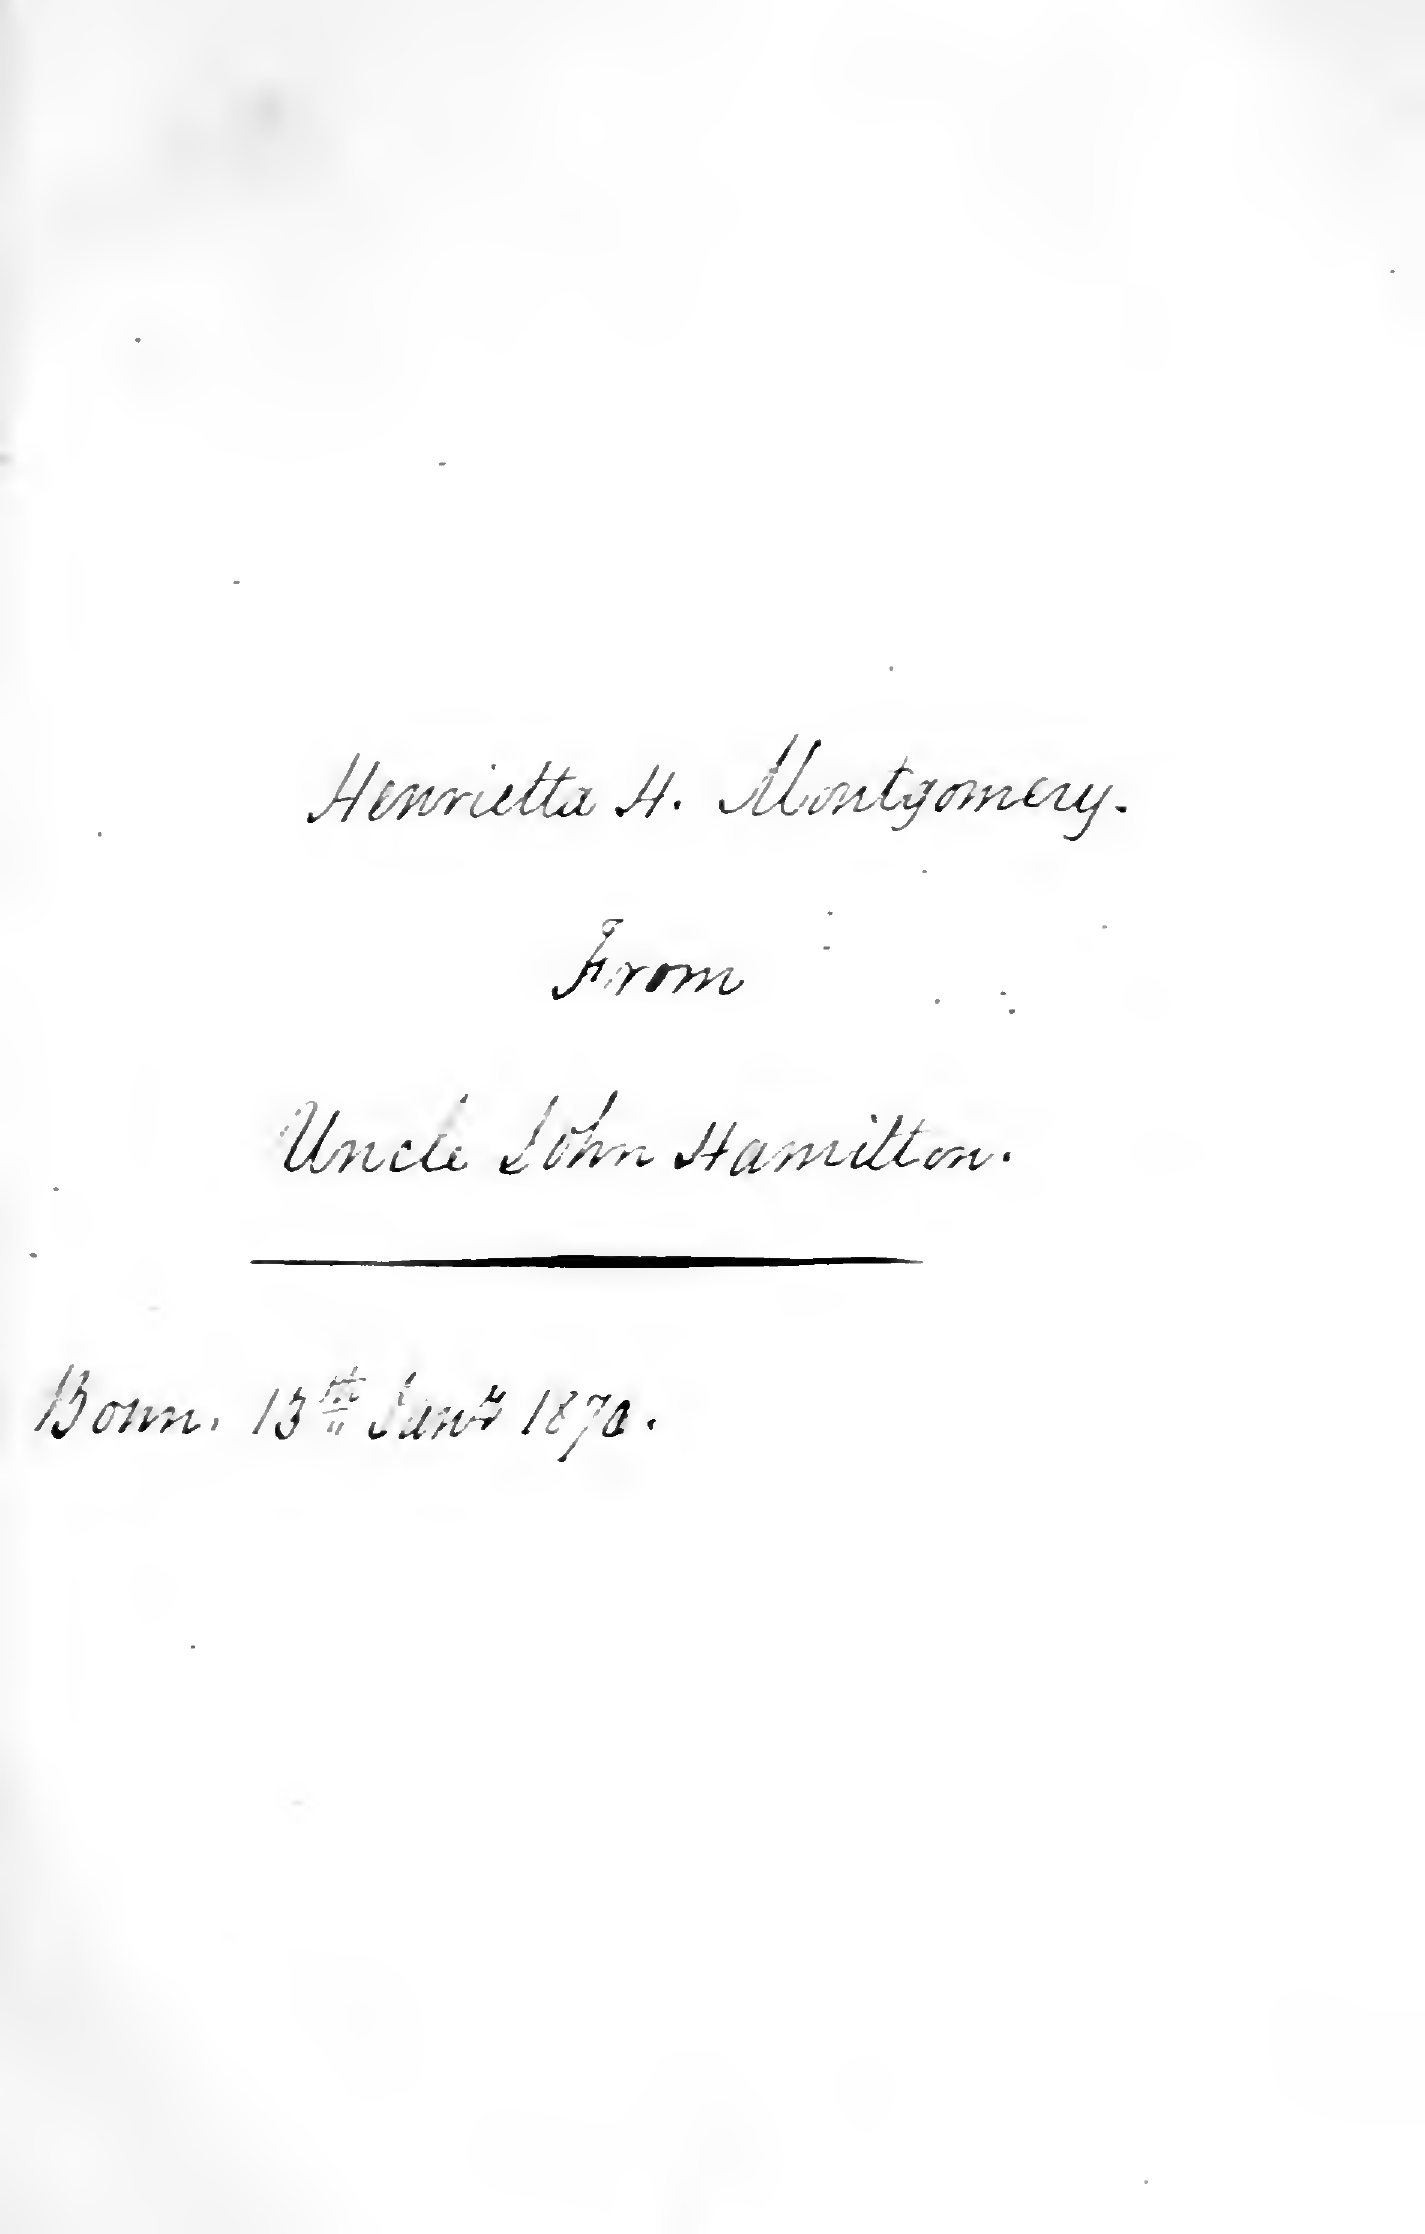 Henrietta H. Montgomery.
From
Uncle John Hamilton.
Bonn. 13th Jany 1870.